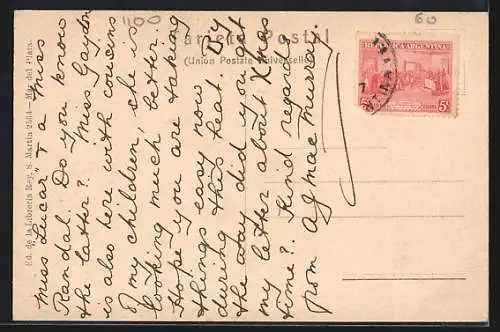 1100
60
Tarjeta Postal
(Union Postale Universelle)
REPUBLICA ARGENTINA
5 5
Ed. de la Librería Rey, S. Martin 2464 - Mar del Plata.
Miss Lucar & a Miss
Randal. Do you know
the latter? Miss Gaydon
is also here with cousins
of my children, she is
looking much better.
Hope you are taking
things easy now
during this heat. By
the way did you get
my letter about Xmas
time? Kind regards
from A G Mac Murray